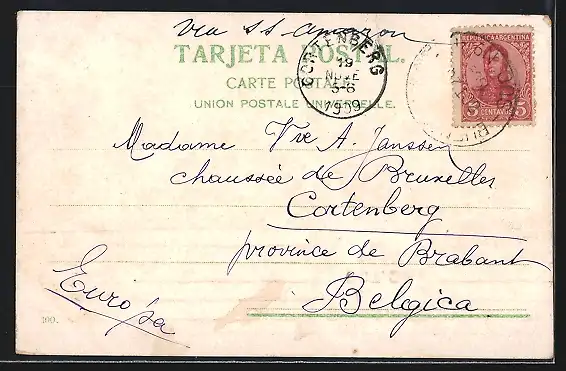 via ss amazon
TARJETA POSTAL.
CARTE POSTALE
UNION POSTALE UNIVERSELLE.
CORTENBERG
19
NOVE
5-6
1909
REPUBLICA ARGENTINA
5 CENTAVOS 5
Madame Vve A. Janssen
chaussée de Bruxelles
Cortenberg
province de Brabant
Europa
Belgica
100.